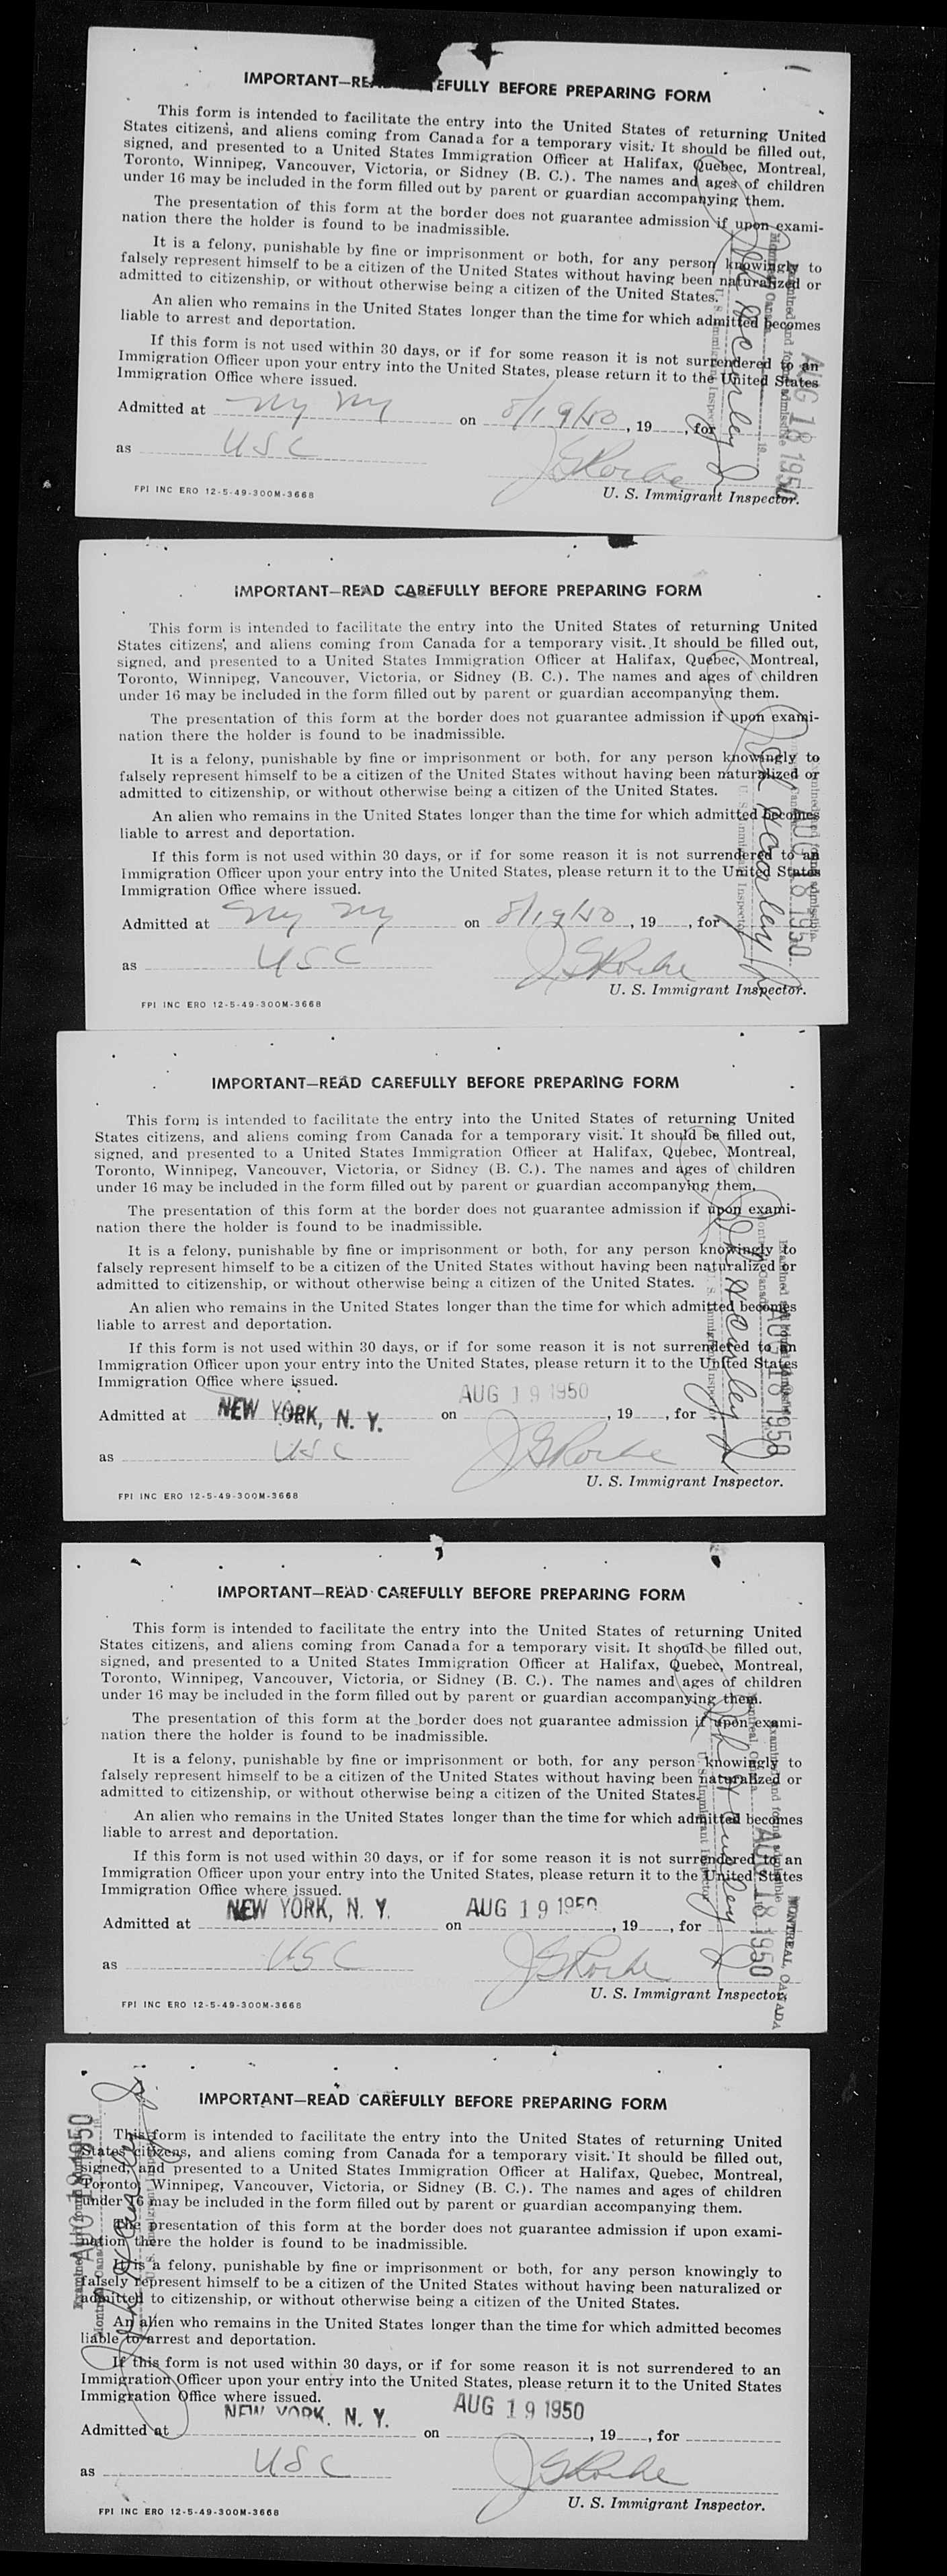 IMPORTANT—REA EFULLY BEFORE PREPARING FORM
This form is intended to facilitate the entry into the United States of returning United
States citizens, and aliens coming from Canada for a temporary visit. It should be filled out,
signed, and presented to a United States Immigration Officer at Halifax, Quebec, Montreal,
Toronto, Winnipeg, Vancouver, Victoria, or Sidney (B. C.). The names and ages of children
under 16 may be included in the form filled out by parent or guardian accompanying them.
The presentation of this form at the border does not guarantee admission if upon exami-
nation there the holder is found to be inadmissible.
It is a felony, punishable by fine or imprisonment or both, for any person knowingly to
falsely represent himself to be a citizen of the United States without having been naturalized or
admitted to citizenship, or without otherwise being a citizen of the United States.
An alien who remains in the United States longer than the time for which admitted becomes
liable to arrest and deportation.
If this form is not used within 30 days, or if for some reason it is not surrendered to an
Immigration Officer upon your entry into the United States, please return it to the United States
Immigration Office where issued.
Admitted at NY NY on 8/19/50, 19, for
as USC
U. S. Immigrant Inspector.
FPI INC ERO 12-5-49-300M-3668
Examined and found admissible
Montreal, Canada
AUG 18 1950
U. S. Immigrant Inspector
IMPORTANT—READ CAREFULLY BEFORE PREPARING FORM
This form is intended to facilitate the entry into the United States of returning United
States citizens, and aliens coming from Canada for a temporary visit. It should be filled out,
signed, and presented to a United States Immigration Officer at Halifax, Quebec, Montreal,
Toronto, Winnipeg, Vancouver, Victoria, or Sidney (B. C.). The names and ages of children
under 16 may be included in the form filled out by parent or guardian accompanying them.
The presentation of this form at the border does not guarantee admission if upon exami-
nation there the holder is found to be inadmissible.
It is a felony, punishable by fine or imprisonment or both, for any person knowingly to
falsely represent himself to be a citizen of the United States without having been naturalized or
admitted to citizenship, or without otherwise being a citizen of the United States.
An alien who remains in the United States longer than the time for which admitted becomes
liable to arrest and deportation.
If this form is not used within 30 days, or if for some reason it is not surrendered to an
Immigration Officer upon your entry into the United States, please return it to the United States
Immigration Office where issued.
Admitted at NY NY on 8/19/50, 19, for
as USC
U. S. Immigrant Inspector.
FPI INC ERO 12-5-49-300M-3668
Examined and found admissible
AUG 18 1950
U. S. Immigrant Inspector
IMPORTANT—READ CAREFULLY BEFORE PREPARING FORM
This form is intended to facilitate the entry into the United States of returning United
States citizens, and aliens coming from Canada for a temporary visit. It should be filled out,
signed, and presented to a United States Immigration Officer at Halifax, Quebec, Montreal,
Toronto, Winnipeg, Vancouver, Victoria, or Sidney (B. C.). The names and ages of children
under 16 may be included in the form filled out by parent or guardian accompanying them.
The presentation of this form at the border does not guarantee admission if upon exami-
nation there the holder is found to be inadmissible.
It is a felony, punishable by fine or imprisonment or both, for any person knowingly to
falsely represent himself to be a citizen of the United States without having been naturalized or
admitted to citizenship, or without otherwise being a citizen of the United States.
An alien who remains in the United States longer than the time for which admitted becomes
liable to arrest and deportation.
If this form is not used within 30 days, or if for some reason it is not surrendered to an
Immigration Officer upon your entry into the United States, please return it to the United States
Immigration Office where issued.
AUG 19 1950
Admitted at NEW YORK, N. Y. on , 19, for
as USC
U. S. Immigrant Inspector.
FPI INC ERO 12-5-49-300M-3668
AUG 18 1950
U. S. Immigrant Inspector
IMPORTANT—READ CAREFULLY BEFORE PREPARING FORM
This form is intended to facilitate the entry into the United States of returning United
States citizens, and aliens coming from Canada for a temporary visit. It should be filled out,
signed, and presented to a United States Immigration Officer at Halifax, Quebec, Montreal,
Toronto, Winnipeg, Vancouver, Victoria, or Sidney (B. C.). The names and ages of children
under 16 may be included in the form filled out by parent or guardian accompanying them.
The presentation of this form at the border does not guarantee admission if upon exami-
nation there the holder is found to be inadmissible.
It is a felony, punishable by fine or imprisonment or both, for any person knowingly to
falsely represent himself to be a citizen of the United States without having been naturalized or
admitted to citizenship, or without otherwise being a citizen of the United States.
An alien who remains in the United States longer than the time for which admitted becomes
liable to arrest and deportation.
If this form is not used within 30 days, or if for some reason it is not surrendered to an
Immigration Officer upon your entry into the United States, please return it to the United States
Immigration Office where issued.
Admitted at NEW YORK, N. Y. on AUG 19 1950, 19, for
as USC
U. S. Immigrant Inspector.
FPI INC ERO 12-5-49-300M-3668
Examined and found admissible
Montreal, Canada
AUG 18 1950
U. S. Immigrant Inspector
MONTREAL, CANADA
IMPORTANT—READ CAREFULLY BEFORE PREPARING FORM
This form is intended to facilitate the entry into the United States of returning United
States citizens, and aliens coming from Canada for a temporary visit. It should be filled out,
signed, and presented to a United States Immigration Officer at Halifax, Quebec, Montreal,
Toronto, Winnipeg, Vancouver, Victoria, or Sidney (B. C.). The names and ages of children
under 16 may be included in the form filled out by parent or guardian accompanying them.
The presentation of this form at the border does not guarantee admission if upon exami-
nation there the holder is found to be inadmissible.
It is a felony, punishable by fine or imprisonment or both, for any person knowingly to
falsely represent himself to be a citizen of the United States without having been naturalized or
admitted to citizenship, or without otherwise being a citizen of the United States.
An alien who remains in the United States longer than the time for which admitted becomes
liable to arrest and deportation.
If this form is not used within 30 days, or if for some reason it is not surrendered to an
Immigration Officer upon your entry into the United States, please return it to the United States
Immigration Office where issued.
Admitted at NEW YORK, N. Y. on AUG 19 1950, 19, for
as USC
U. S. Immigrant Inspector.
FPI INC ERO 12-5-49-300M-3668
AUG 18 1950